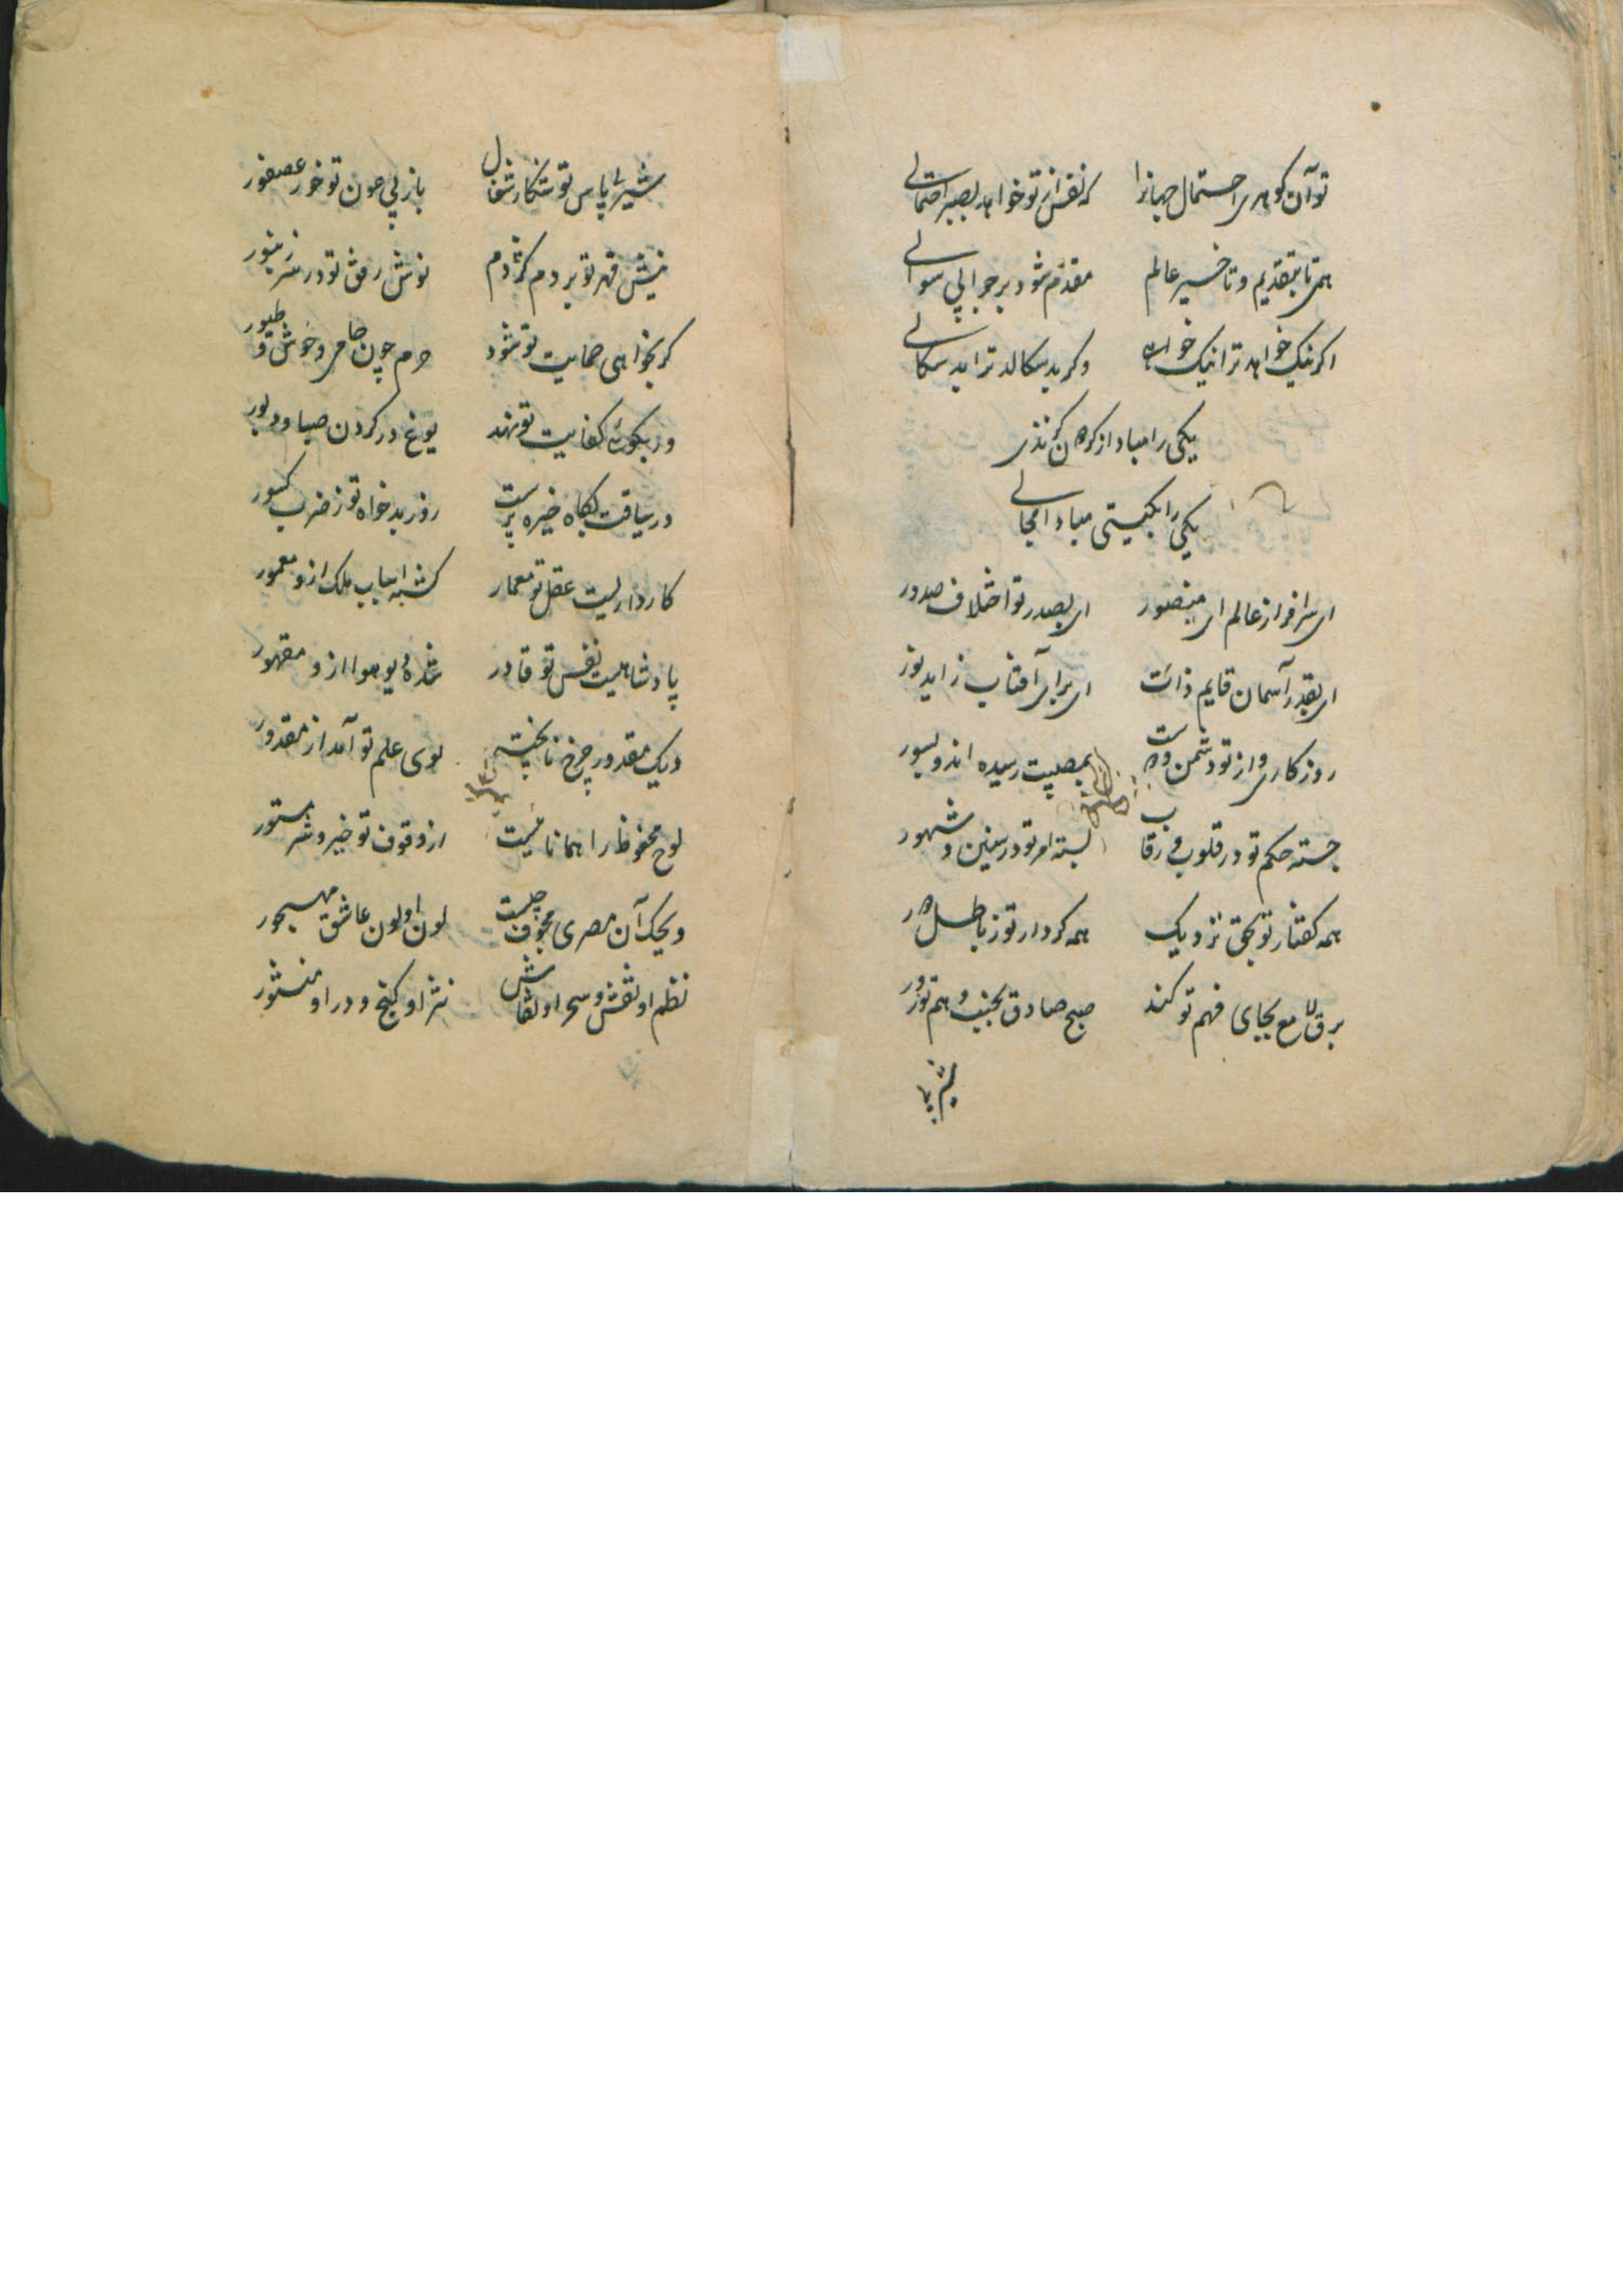 تو آن کوهی احتمال جهانرا که نفس از تو خواهد بصبر احتمالی
همی تا بتقدیم و تاخیر عالم مقدم شود بر جوابی سوالی
اگر نیک خواهد ترا نیک خواه وگر بد سکالد ترا بد سکالی
یکی را مباد از کوه کن نذر
یکی را بگیتی مبادا مجالی
ای سرافراز عالم ای منصور ای بصدر تو اختلاف صدور
ای بقدر آسمان قایم ذات ای برای آفتاب زاید نور
روزگاری و از تو دشمن و دوست بمصیبت رسیده اند و بسور
جسته حکم تو در قلوب و رقاب بسته امر تو در سنین و شهور
همه گفتار تو بحق نزدیک همه کردار تو ز باطل دور
برق لامع بجای فهم تو کند صبح صادق بجنب وهم تو زور
شیر با
شیر بی پاس تو شکار شغال باز بی عون تو خور عصفور
نیش قهر تو بر دم کژدم نوش رفق تو در سر زنبور
گر بخواهی حمایت تو شود حرم چون حامی وحوش و طیور
ور بکوئی کفایت تو نهد یوغ در گردن صبا و دبور
در سیاقت بگاه خیره پرست روز بدخواه تو ز ضرب کسور
کارداریست عقل تو معمار گشته اسباب ملک ازو معمور
پادشاهیست نفس تو قادر شده دیو هوا ازو مقهور
دیک مقدور چرخ ناپخته بوی علم تو آمد از مقدور
لوح محفوظ را همانا نیست از وقوف تو خیر و شر مستور
ویحک آن مصری مجوف چیست لون او لون عاشق مهجور
نظم او نقش و سحر او نقاش نثر او گنج و در او منثور